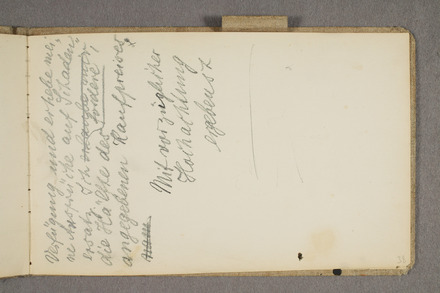 Verfügung und erhebe mei-
ne Ansprüche auf Schaden-
ersatz. Ich verlange
fordere,
die Hälfte des
angegebenen Kaufpreises
Mit vorzüglicher
Hochachtung
ergebenst